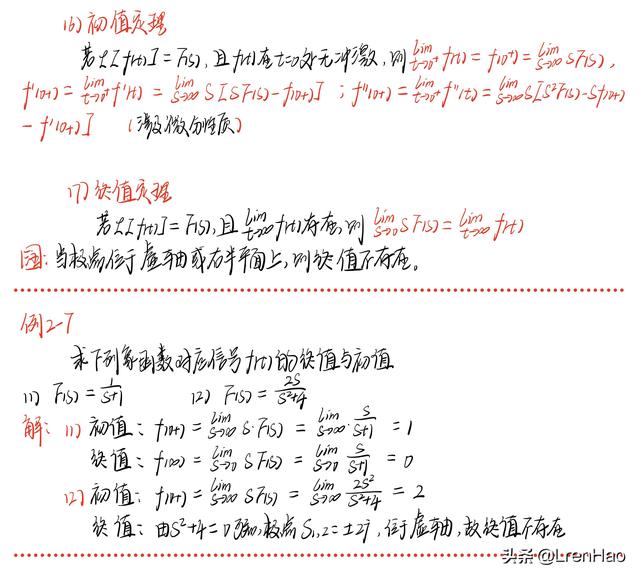 (6) 初值定理
若ℒ[f(t)] = F(s), 且f(t)在t=0处无冲激, 则 lim t→0⁺ f(t) = f(0⁺) = lim s→∞ sF(s),
f'(0+) = lim t→0⁺ f'(t) = lim s→∞ s[sF(s)-f(0+)] ; f''(0+) = lim t→0⁺ f''(t) = lim s→∞ s[s²F(s)-sf(0+)
- f'(0+)] (涉及微分性质)
(7) 终值定理
若ℒ[f(t)] = F(s), 且 lim t→∞ f(t)存在, 则 lim s→0 sF(s) = lim t→∞ f(t)
当极点位于虚轴或右半平面上, 则终值不存在。
例2-7
求下列象函数对应信号f(t)的终值与初值
(1) F(s) = 1/(s+1) (2) F(s) = 2s/(s²+4)
解: (1) 初值: f(0+) = lim s→∞ s·F(s) = lim s→∞ · s/(s+1) = 1
终值: f(∞) = lim s→0 sF(s) = lim s→0 s/(s+1) = 0
(2) 初值: f(0+) = lim s→∞ sF(s) = lim s→∞ 2s²/(s²+4) = 2
终值: 由s²+4=0可知, 极点 s₁,₂ = ±2j, 位于虚轴, 故终值不存在
头条 @LrenHao